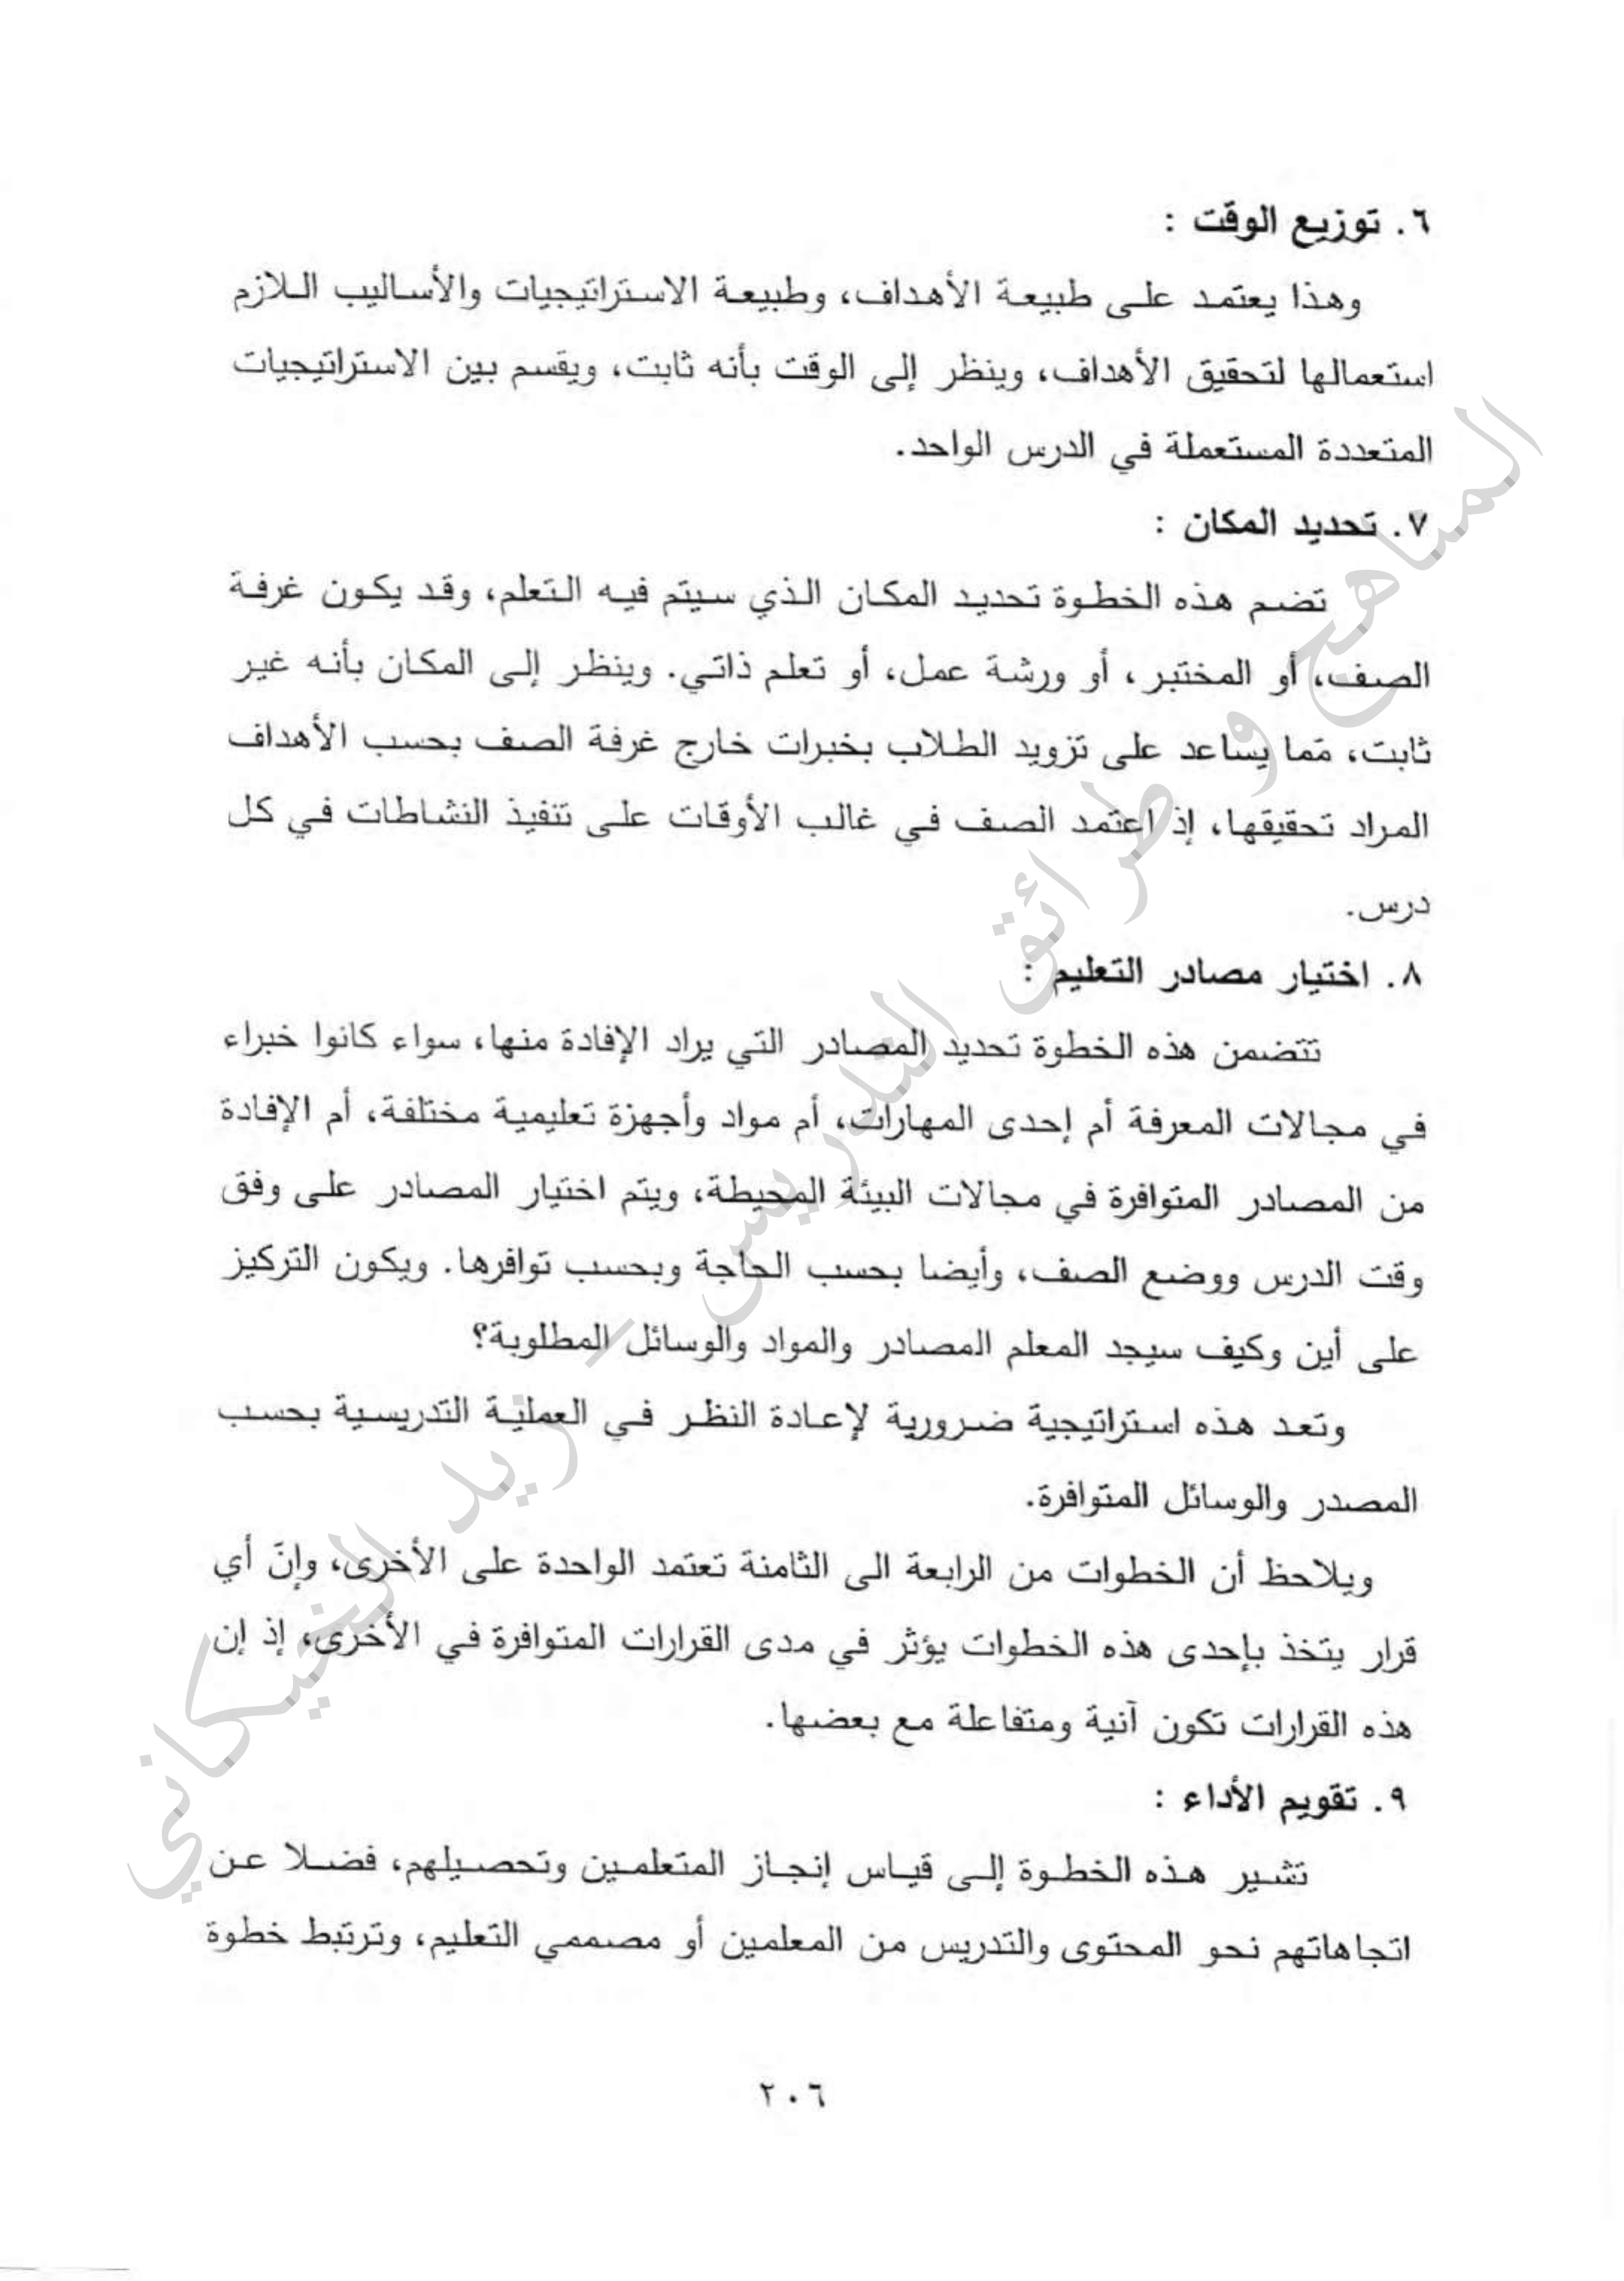 ٦. توزيع الوقت :
وهذا يعتمد على طبيعة الأهداف، وطبيعة الاستراتيجيات والأساليب اللازم
استعمالها لتحقيق الأهداف، وينظر إلى الوقت بأنه ثابت، ويقسم بين الاستراتيجيات
المتعددة المستعملة في الدرس الواحد.
٧. تحديد المكان :
تضم هذه الخطوة تحديد المكان الذي سيتم فيه التعلم، وقد يكون غرفة
الصف، أو المختبر، أو ورشة عمل، أو تعلم ذاتي. وينظر إلى المكان بأنه غير
ثابت، مّما يساعد على تزويد الطلاب بخبرات خارج غرفة الصف بحسب الأهداف
المراد تحقيقها، إذ اعتمد الصف في غالب الأوقات على تنفيذ النشاطات في كل
درس.
٨. اختيار مصادر التعليم :
تتضمن هذه الخطوة تحديد المصادر التي يراد الإفادة منها، سواء كانوا خبراء
في مجالات المعرفة أم إحدى المهارات، أم مواد وأجهزة تعليمية مختلفة، أم الإفادة
من المصادر المتوافرة في مجالات البيئة المحيطة، ويتم اختيار المصادر على وفق
وقت الدرس ووضع الصف، وأيضا بحسب الحاجة وبحسب توافرها. ويكون التركيز
على أين وكيف سيجد المعلم المصادر والمواد والوسائل المطلوبة؟
وتعد هذه استراتيجية ضرورية لإعادة النظر في العملية التدريسية بحسب
المصدر والوسائل المتوافرة.
ويلاحظ أن الخطوات من الرابعة الى الثامنة تعتمد الواحدة على الأخرى، وإنّ أي
قرار يتخذ بإحدى هذه الخطوات يؤثر في مدى القرارات المتوافرة في الأخرى، إذ إن
هذه القرارات تكون آنية ومتفاعلة مع بعضها.
٩. تقويم الأداء :
تشير هذه الخطوة إلى قياس إنجاز المتعلمين وتحصيلهم، فضلا عن
اتجاهاتهم نحو المحتوى والتدريس من المعلمين أو مصممي التعليم، وترتبط خطوة
٢٠٦
المناهج و طرائق التدريس – زيد الخيكاني